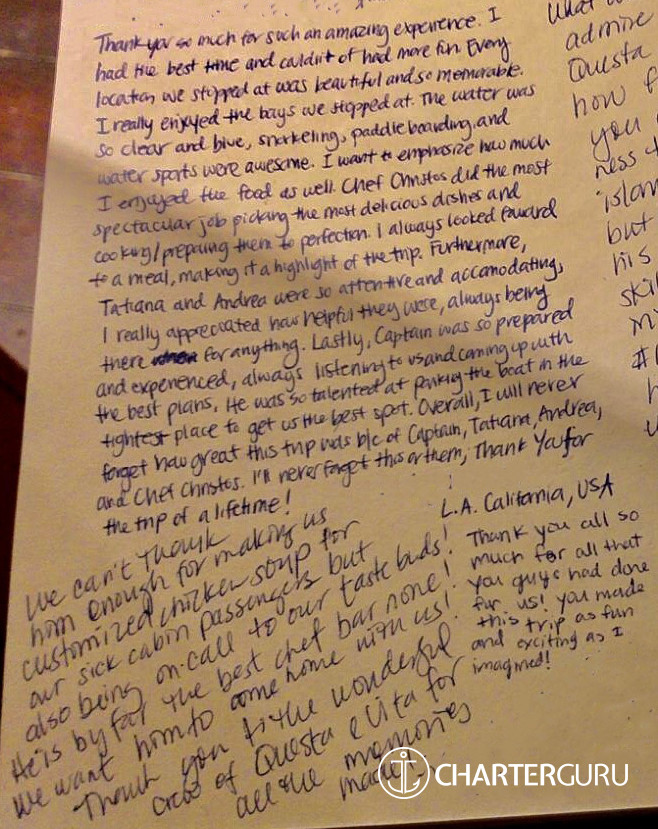 Thank you so much for such an amazing experience. I
had the best time and couldn't of had more fun. Every
location we stopped at was beautiful and so memorable.
I really enjoyed the bays we stopped at. The water was
so clear and blue, snorkeling, paddle boarding, and
water sports were awesome. I want to emphasize how much
I enjoyed the food as well. Chef Christos did the most
spectacular job picking the most delicious dishes and
cooking/preparing them to perfection. I always looked foward
to a meal, making it a highlight of the trip. Furthermore,
Tatiana and Andrea were so attentive and accomodating,
I really appreciated how helpful they were, always being
there for anything. Lastly, Captain was so prepared
and experienced, always listening to us and coming up with
the best plans. He was so talented at parking the boat in the
tightest place to get us the best spot. Overall, I will never
forget how great this trip was b/c of Captain, Tatiana, Andrea,
and Chef Christos. I'll never forget this or them, Thank You for
the trip of a lifetime!
L.A. California, USA
We can't thank
him enough for making us
customized chicken soup for
our sick cabin passengers but
also being on-call to our taste buds!
He is by far the best chef bar none!
We want him to come home with us!
Thank you to the wonderful
crew of Questa e Vita for
all the memories
made
Thank you all so
much for all that
you guys had done
for us! You made
this trip as fun
and exciting as I
imagined!
What
admire
Questa
how
you
ness
islan
but
his
skil
CHARTERGURU